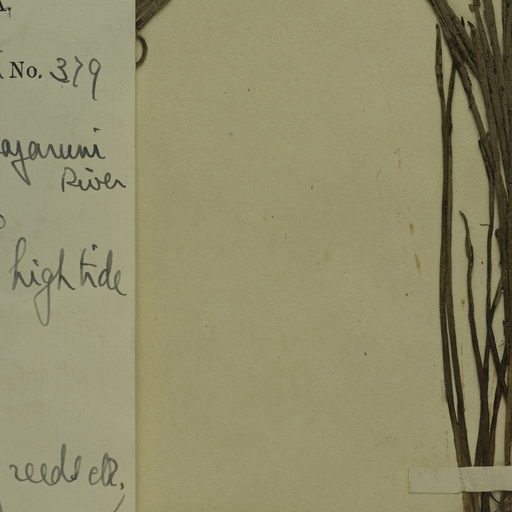 No. 379
azaruni
River
high tide
reeds etc.